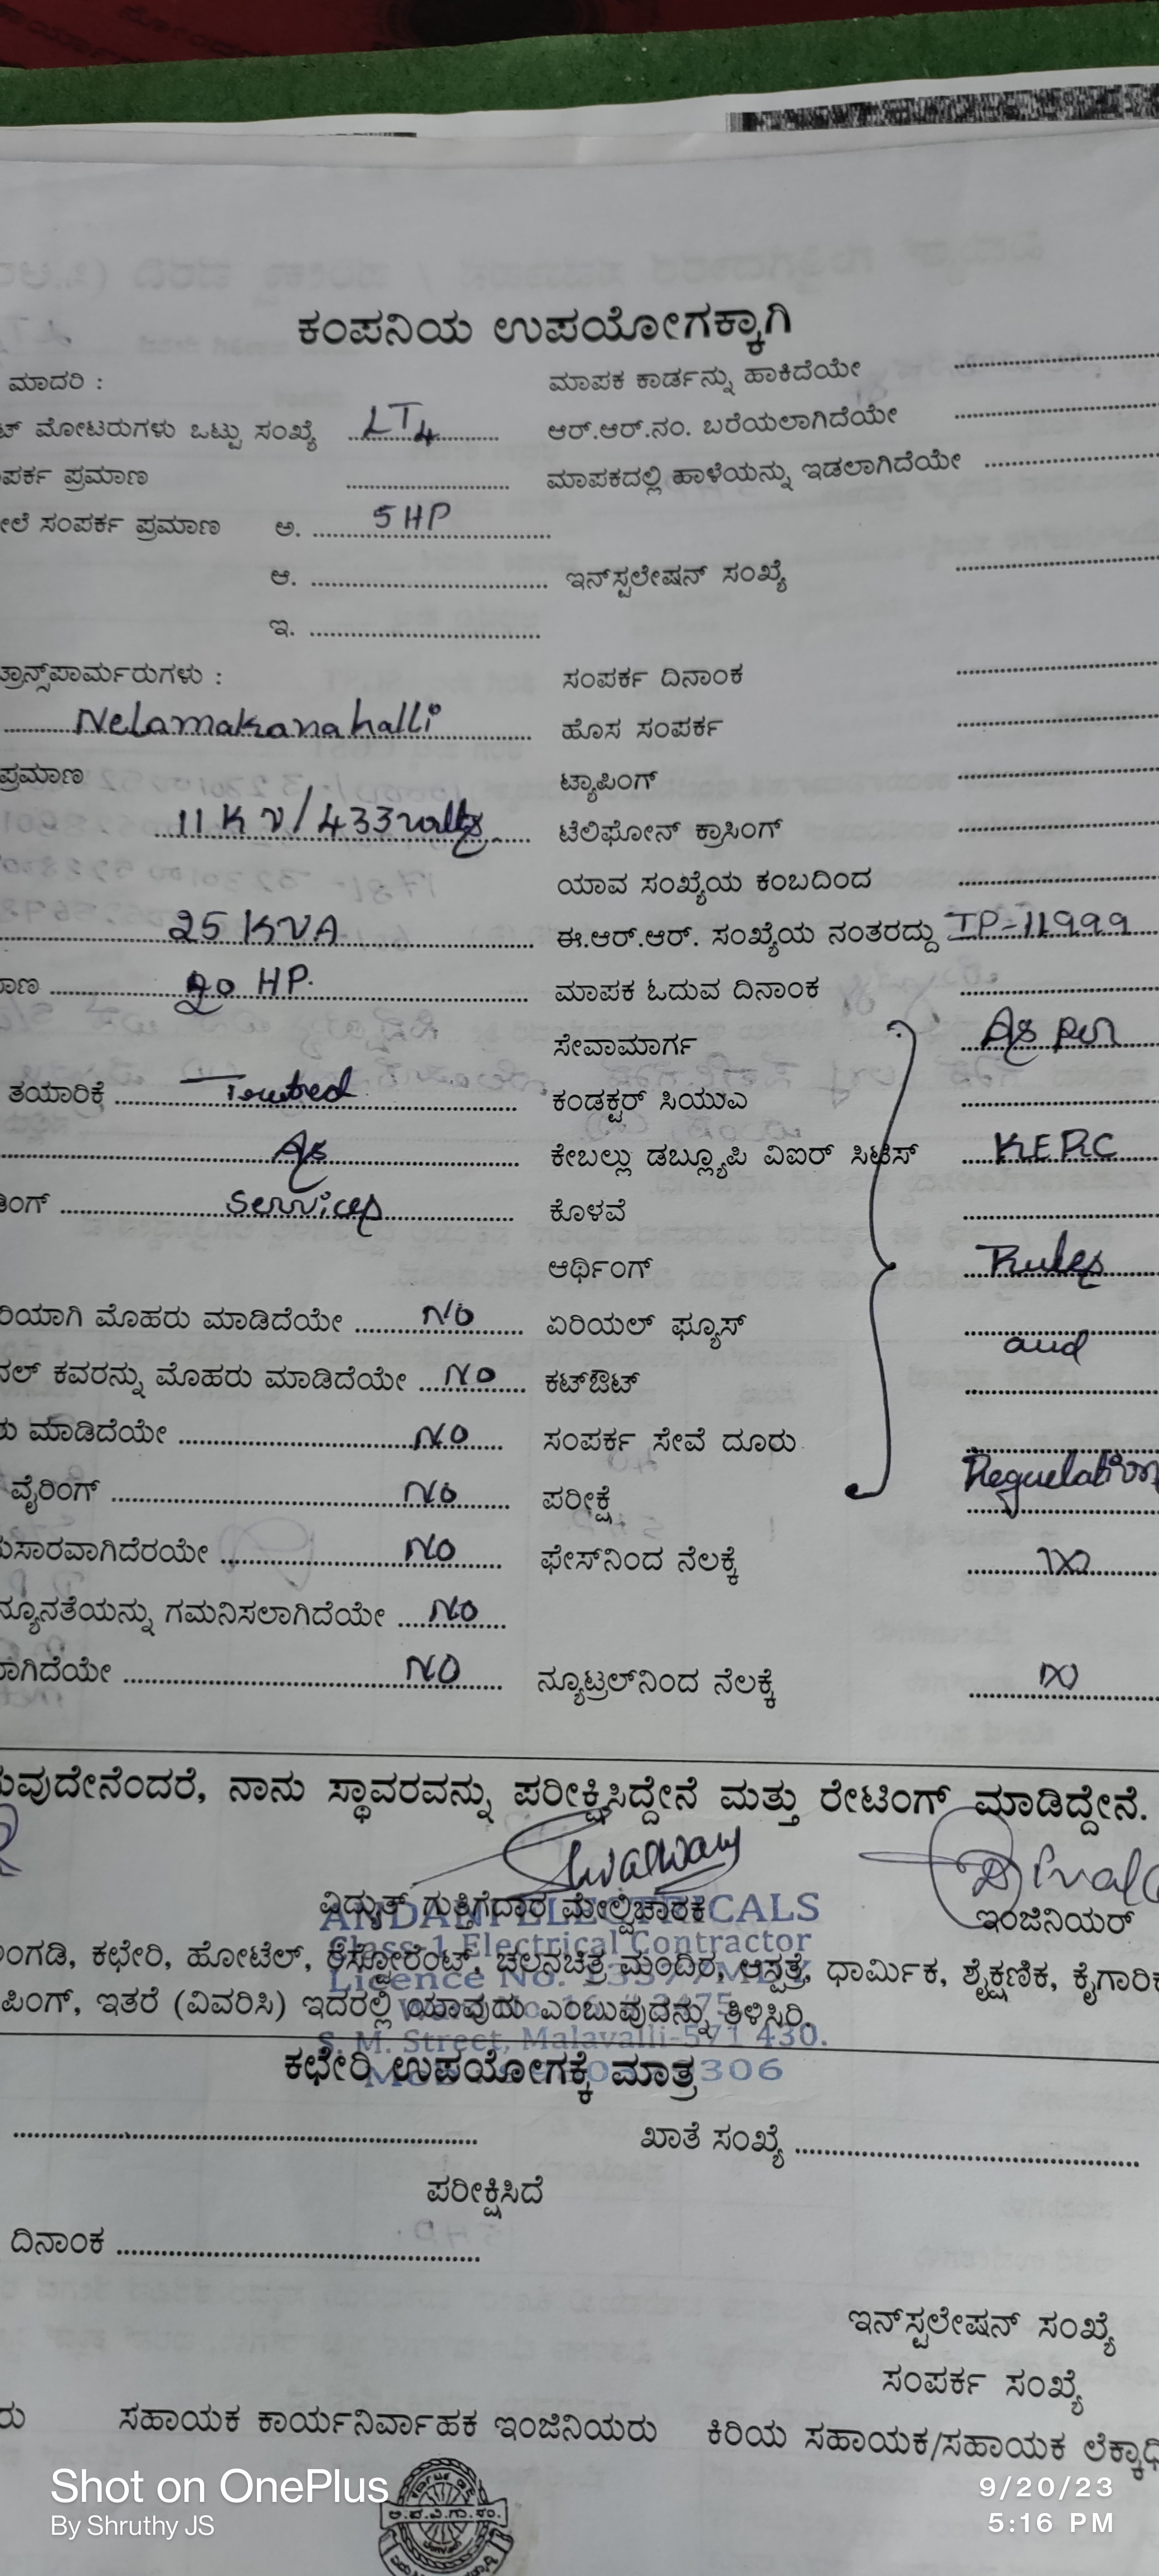 ಕಂಪನಿಯ ಉಪಯೋಗಕ್ಕಾಗಿ
ಮಾದರಿ : ಮಾಪಕ ಕಾರ್ಡನ್ನು ಹಾಕಿದೆಯೇ
ಟ್ ಮೋಟರುಗಳು ಒಟ್ಟು ಸಂಖ್ಯೆ LT4 ಆರ್.ಆರ್.ನಂ. ಬರೆಯಲಾಗಿದೆಯೇ
ಪರ್ಕ ಪ್ರಮಾಣ ಮಾಪಕದಲ್ಲಿ ಹಾಳೆಯನ್ನು ಇಡಲಾಗಿದೆಯೇ
ಲೆ ಸಂಪರ್ಕ ಪ್ರಮಾಣ ಅ. 5 HP
ಆ. ಇನ್‌ಸ್ಟಲೇಷನ್ ಸಂಖ್ಯೆ
ಇ.
ಟ್ರಾನ್ಸ್‌ಪಾರ್ಮರುಗಳು : ಸಂಪರ್ಕ ದಿನಾಂಕ
Nelamakanahalli ಹೊಸ ಸಂಪರ್ಕ
ಪ್ರಮಾಣ ಟ್ಯಾಪಿಂಗ್
11 KV/433 volts ಟೆಲಿಫೋನ್ ಕ್ರಾಸಿಂಗ್
ಯಾವ ಸಂಖ್ಯೆಯ ಕಂಬದಿಂದ
25 KVA ಈ.ಆರ್.ಆರ್. ಸಂಖ್ಯೆಯ ನಂತರದ್ದು IP-11999
ಾಣ 20 HP. ಮಾಪಕ ಓದುವ ದಿನಾಂಕ
ಸೇವಾಮಾರ್ಗ As per
ತಯಾರಿಕೆ ಕಂಡಕ್ಟರ್ ಸಿಯುಎ
As ಕೇಬಲ್ಲು ಡಬ್ಲ್ಯೂಪಿ ವಿಐರ್ ಸಿಟಿಸ್ KERC
ಿಂಗ್ Services ಕೊಳವೆ
ಆರ್ಥಿಂಗ್ Rules
ರಿಯಾಗಿ ಮೊಹರು ಮಾಡಿದೆಯೇ No ಏರಿಯಲ್ ಫ್ಯೂಸ್ and
ನಲ್ ಕವರನ್ನು ಮೊಹರು ಮಾಡಿದೆಯೇ No ಕಟ್‌ಔಟ್
ು ಮಾಡಿದೆಯೇ No ಸಂಪರ್ಕ ಸೇವೆ ದೂರು
ವೈರಿಂಗ್ No ಪರೀಕ್ಷೆ Reguelation
ುಸಾರವಾಗಿದೆರಯೇ No ಫೇಸ್‌ನಿಂದ ನೆಲಕ್ಕೆ
ನ್ಯೂನತೆಯನ್ನು ಗಮನಿಸಲಾಗಿದೆಯೇ No
ಾಗಿದೆಯೇ NO ನ್ಯೂಟ್ರಲ್‌ನಿಂದ ನೆಲಕ್ಕೆ
ುವುದೇನೆಂದರೆ, ನಾನು ಸ್ಥಾವರವನ್ನು ಪರೀಕ್ಷಿಸಿದ್ದೇನೆ ಮತ್ತು ರೇಟಿಂಗ್ ಮಾಡಿದ್ದೇನೆ.
ವಿದ್ಯುತ್ ಗುತ್ತಿಗೆದಾರ ಮೇಲ್ವಿಚಾರಕ ಇಂಜಿನಿಯರ್
ELECTRICALS
Class-1 Electrical Contractor
Licence No.
ಂಗಡಿ, ಕಛೇರಿ, ಹೋಟೆಲ್, ರೆಸ್ಟೋರೆಂಟ್, ಚಲನಚಿತ್ರ ಮಂದಿರ, ಆಸ್ಪತ್ರೆ, ಧಾರ್ಮಿಕ, ಶೈಕ್ಷಣಿಕ, ಕೈಗಾರಿಕ
ಪಿಂಗ್, ಇತರೆ (ವಿವರಿಸಿ) ಇದರಲ್ಲಿ ಯಾವುದು ಎಂಬುವುದನ್ನು ತಿಳಿಸಿರಿ.
S. M. Street, Malavalli-571 430.
ಕಛೇರಿ ಉಪಯೋಗಕ್ಕೆ ಮಾತ್ರ
ಖಾತೆ ಸಂಖ್ಯೆ
ಪರೀಕ್ಷಿಸಿದೆ
ದಿನಾಂಕ
ಇನ್‌ಸ್ಟಲೇಷನ್ ಸಂಖ್ಯೆ
ಸಂಪರ್ಕ ಸಂಖ್ಯೆ
ರು ಸಹಾಯಕ ಕಾರ್ಯನಿರ್ವಾಹಕ ಇಂಜಿನಿಯರು ಕಿರಿಯ ಸಹಾಯಕ/ಸಹಾಯಕ ಲೆಕ್ಕಾಧಿ
Shot on OnePlus
By Shruthy JS
9/20/23
5:16 PM